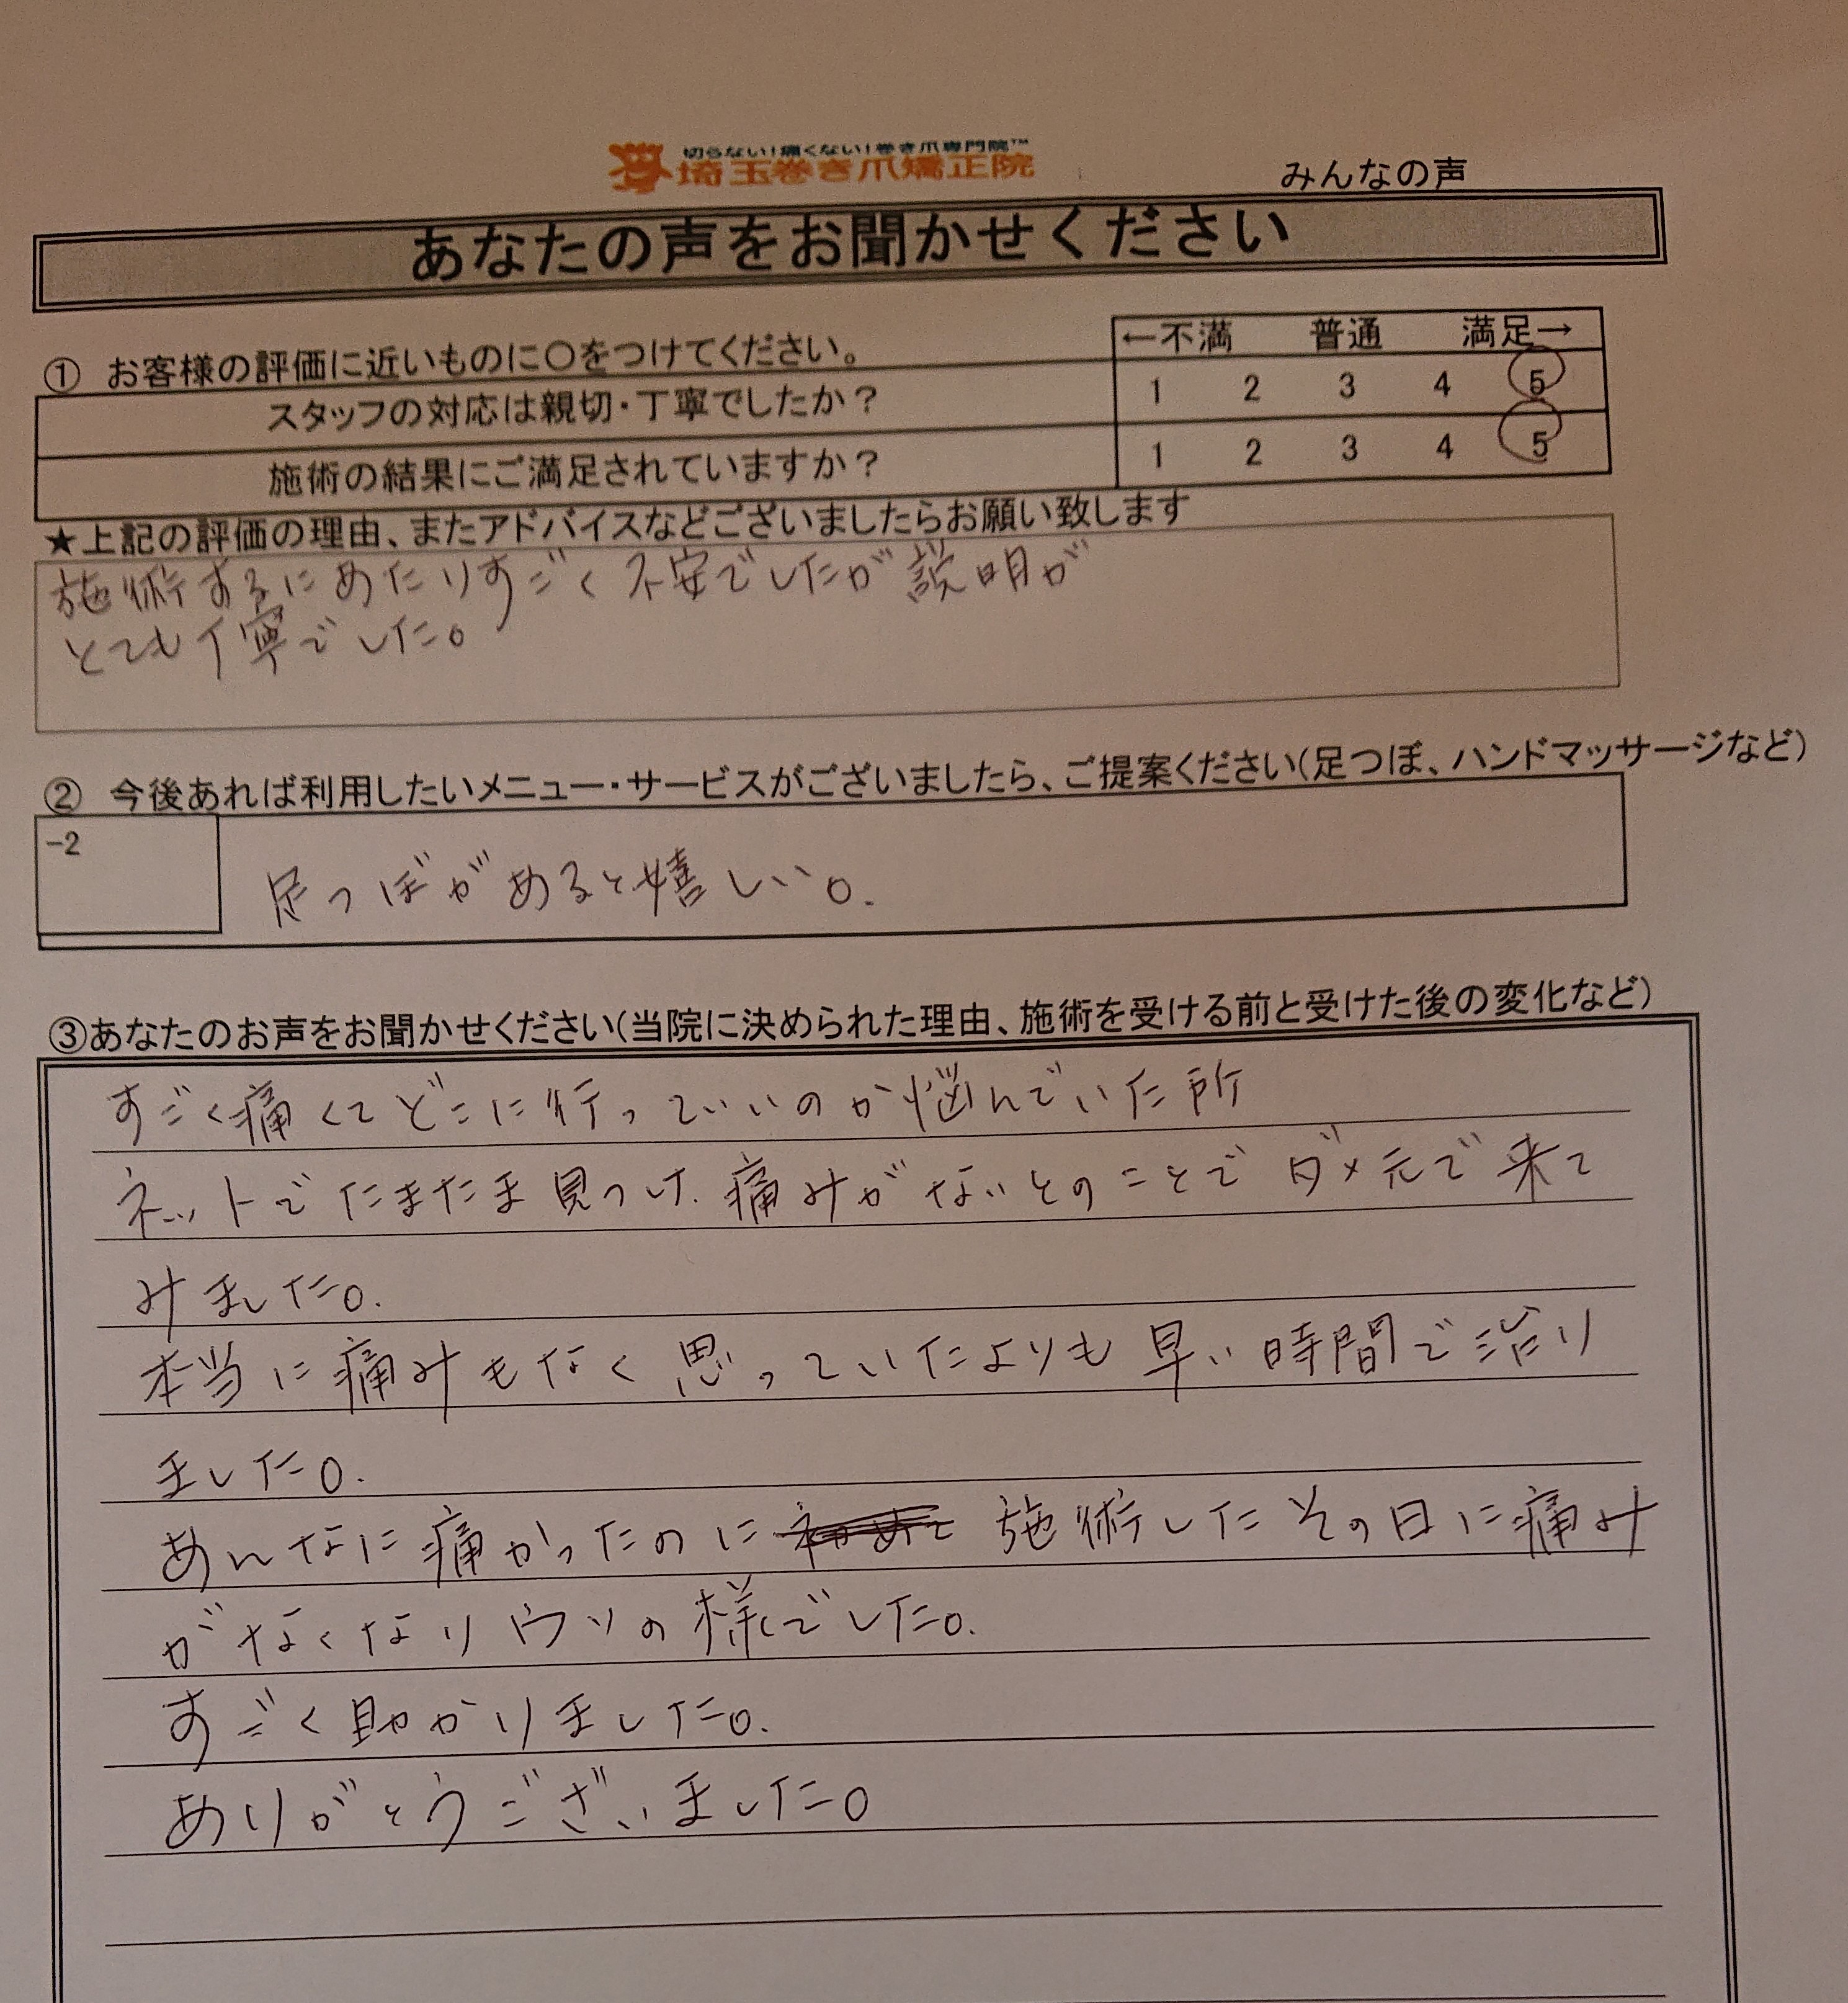 切らない!痛くない!巻き爪専門院™
埼玉巻き爪矯正院
みんなの声
あなたの声をお聞かせください
① お客様の評価に近いものに〇をつけてください。
←不満 普通 満足→
スタッフの対応は親切・丁寧でしたか？ 1 2 3 4 5
施術の結果にご満足されていますか？ 1 2 3 4 5
★上記の評価の理由、またアドバイスなどございましたらお願い致します
施術するにあたりすごく不安でしたが説明が
とても丁寧でした。
② 今後あれば利用したいメニュー・サービスがございましたら、ご提案ください(足つぼ、ハンドマッサージなど)
-2
足つぼがあると嬉しい。
③あなたのお声をお聞かせください(当院に決められた理由、施術を受ける前と受けた後の変化など)
すごく痛くてどこに行っていいのか悩んでいた所
ネットでたまたま見つけ、痛みがないとのことでダメ元で来て
みました。
本当に痛みもなく思っていたよりも早い時間で治り
ました。
あんなに痛かったのに 施術したその日に痛み
がなくなりウソの様でした。
すごく助かりました。
ありがとうございました。